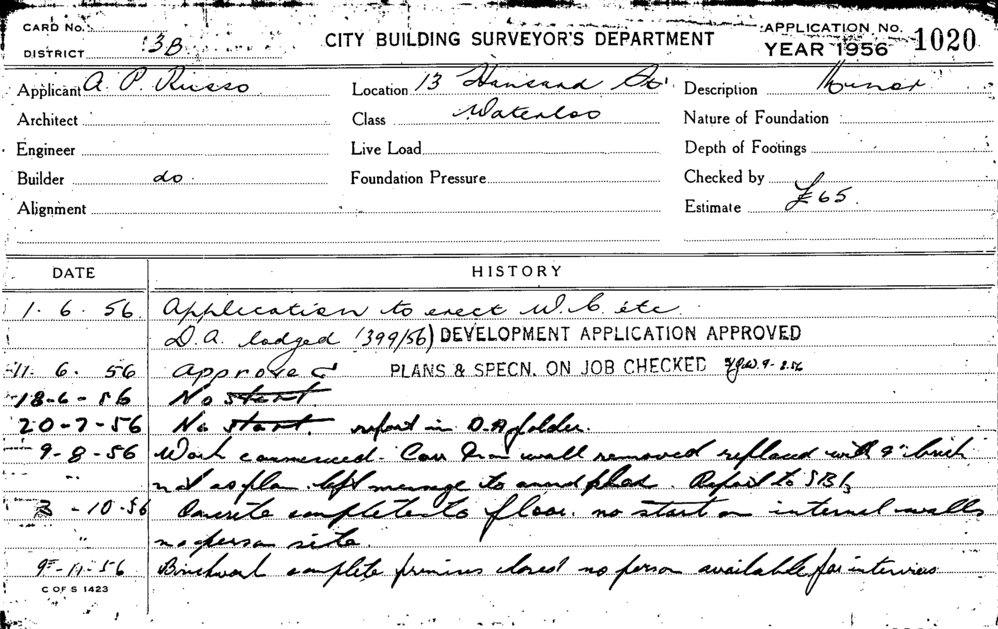 CARD No.
CITY BUILDING SURVEYOR'S DEPARTMENT
APPLICATION No. 1020
DISTRICT 3B
YEAR 1956
Applicant A. P. Russo
Location 13 Hansard St
Description Minor
Architect
Class Waterloo
Nature of Foundation
Engineer
Live Load
Depth of Footings
Builder do
Foundation Pressure
Checked by
Alignment
Estimate £65.
DATE
HISTORY
1. 6. 56 Application to erect W.C. etc.
D.A. lodged 399/56) DEVELOPMENT APPLICATION APPROVED
11. 6. 56 Approved PLANS & SPECN. ON JOB CHECKED 9-8.56
18-6-56 No start
20-7-56 No start. report in D.A folder.
9-8-56 Work commenced - Corr Iron wall removed replaced with 9" brick
not as plan left message to amend plan. Report to SBI
3-10-56 Concrete completed to floor. no start on internal walls
no person site.
9-11-56 Brickwork complete premises closed no person available for interview
C OF S 1423